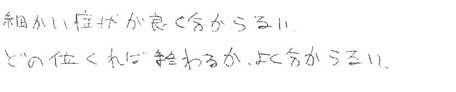 細かい症状が良く分からない。
どの位くれば終わるか、よく分からない。